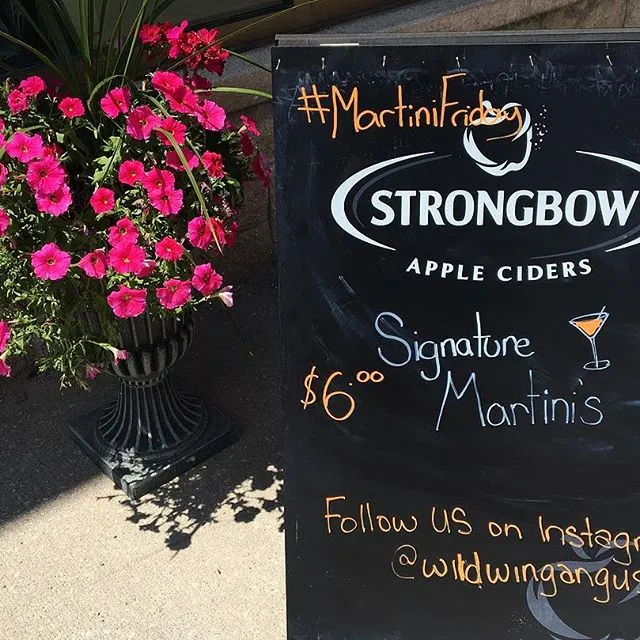 #MartiniFriday
STRONGBOW
APPLE CIDERS
Signature
$6.00 Martini's
Follow us on Instagr
@wildwingangus